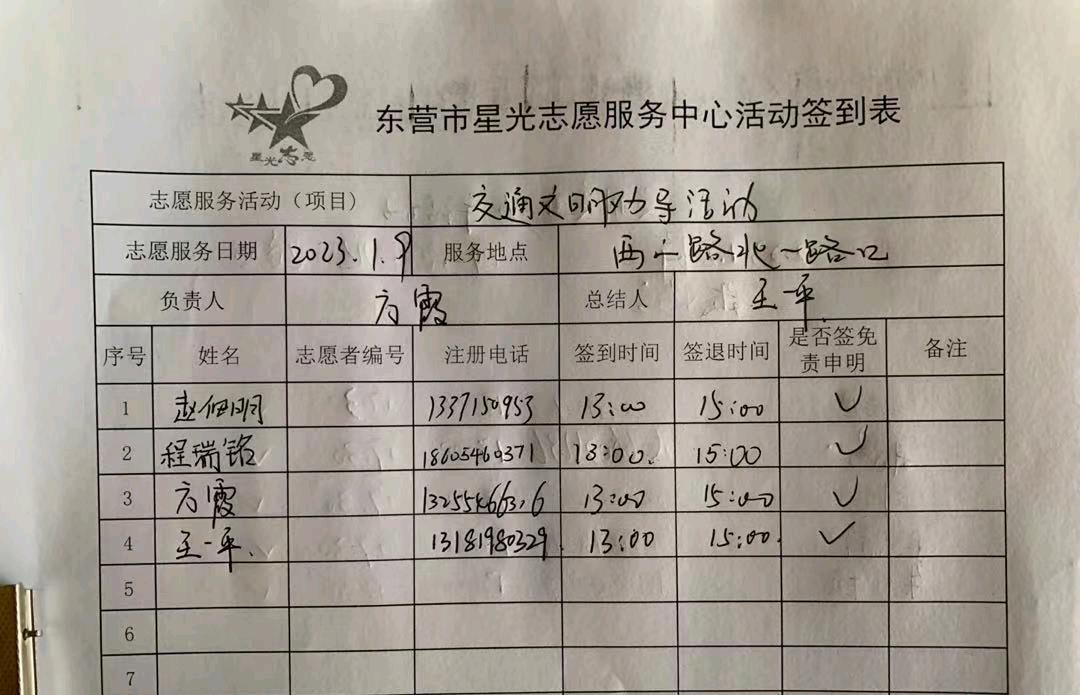 星光志愿
东营市星光志愿服务中心活动签到表
志愿服务活动（项目） 交通文明劝导活动
志愿服务日期 2023.1.9 服务地点 西二路北一路口
负责人 方霞 总结人 王一平
序号 姓名 志愿者编号 注册电话 签到时间 签退时间 是否签免责申明 备注
1 赵伯明 1337150953 13:00 15:00 ✓
2 程瑞铭 18605460371 13:00. 15:00 ✓
3 方霞 13:00 15:00 ✓
4 王一平. 13181980329. 13:00 15:00. ✓
5
6
7